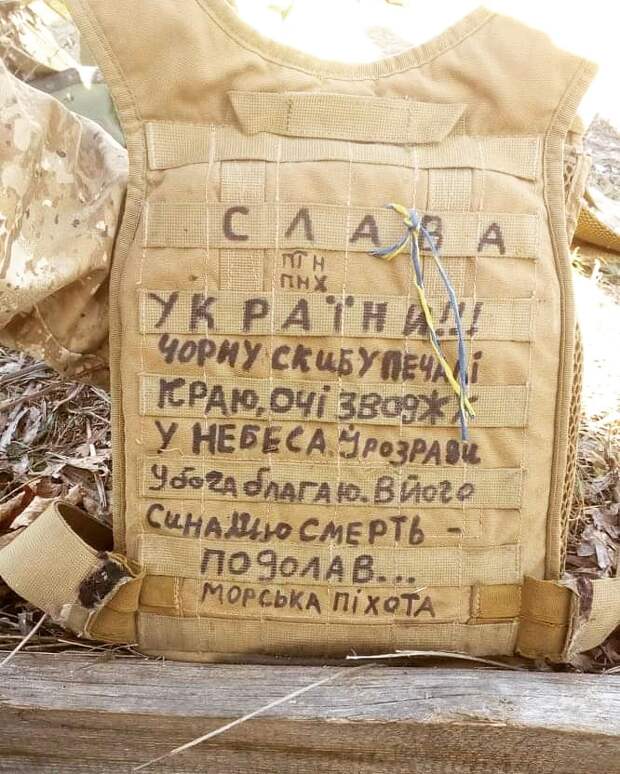 СЛАВА
ПТН
ПНХ
УКРАЇНИ!!!
ЧОРНУ СКИБУ ПЕЧАЛІ
КРАЮ, ОЧІ ЗВОДЖУ
У НЕБЕСА. Й РОЗРАДИ
У бога благаю. В його
Сина що смерть -
подолав...
МОРСЬКА ПІХОТА